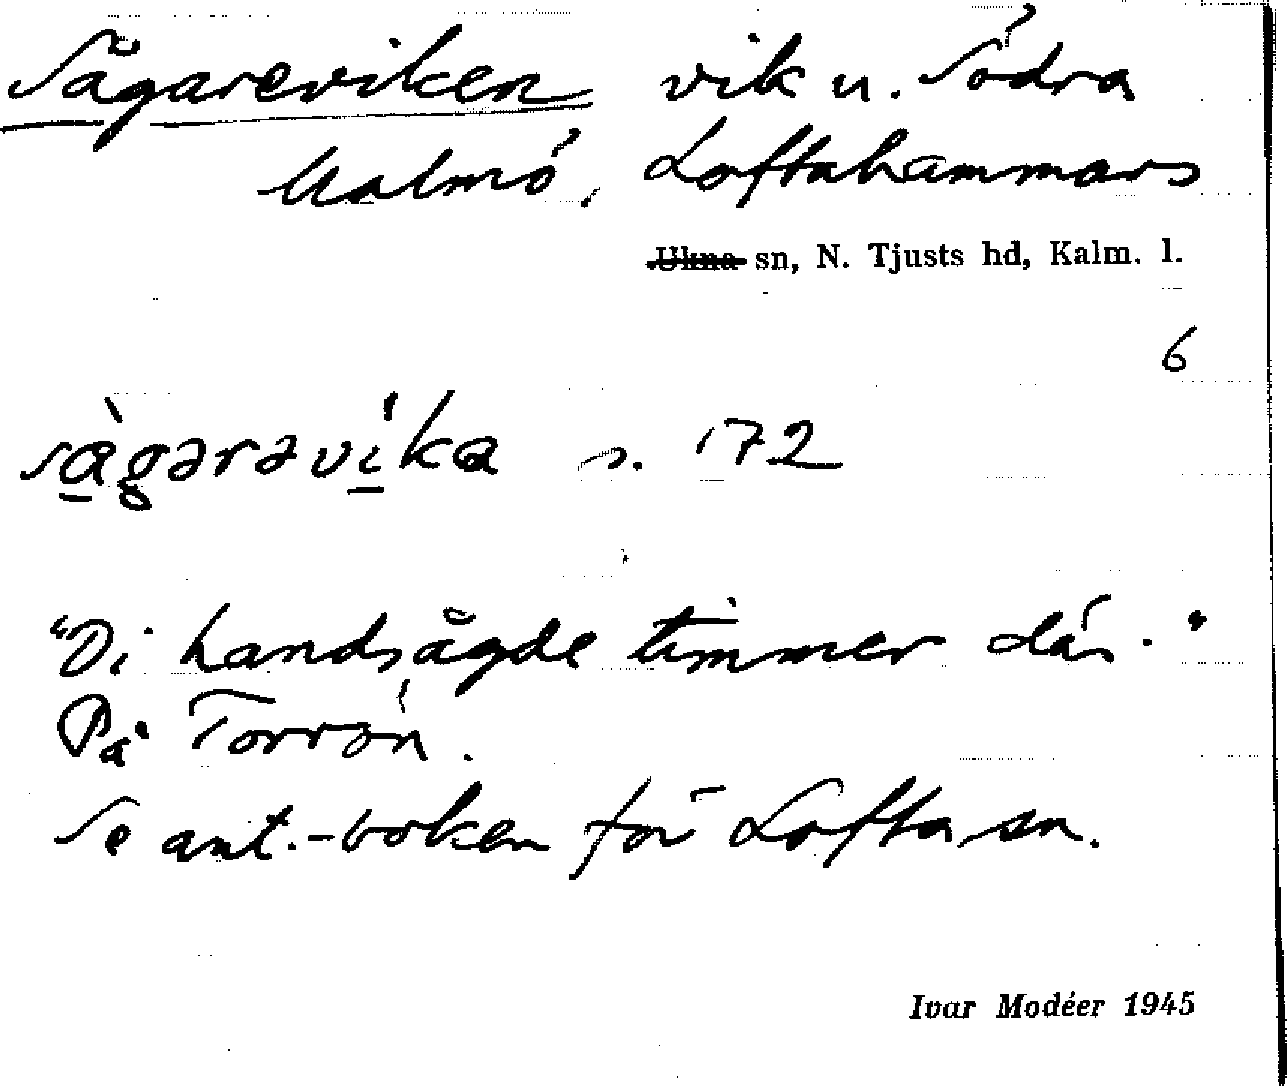 Sågareviken vik u. Södra
Malmö, Loftahammars
Ukna sn, N. Tjusts hd, Kalm. l.
6
sàgərəvíka s. 172
"Di handsågde timmer där."
På Torrön.
Se ant.-boken för Lofta sn.
Ivar Modéer 1945